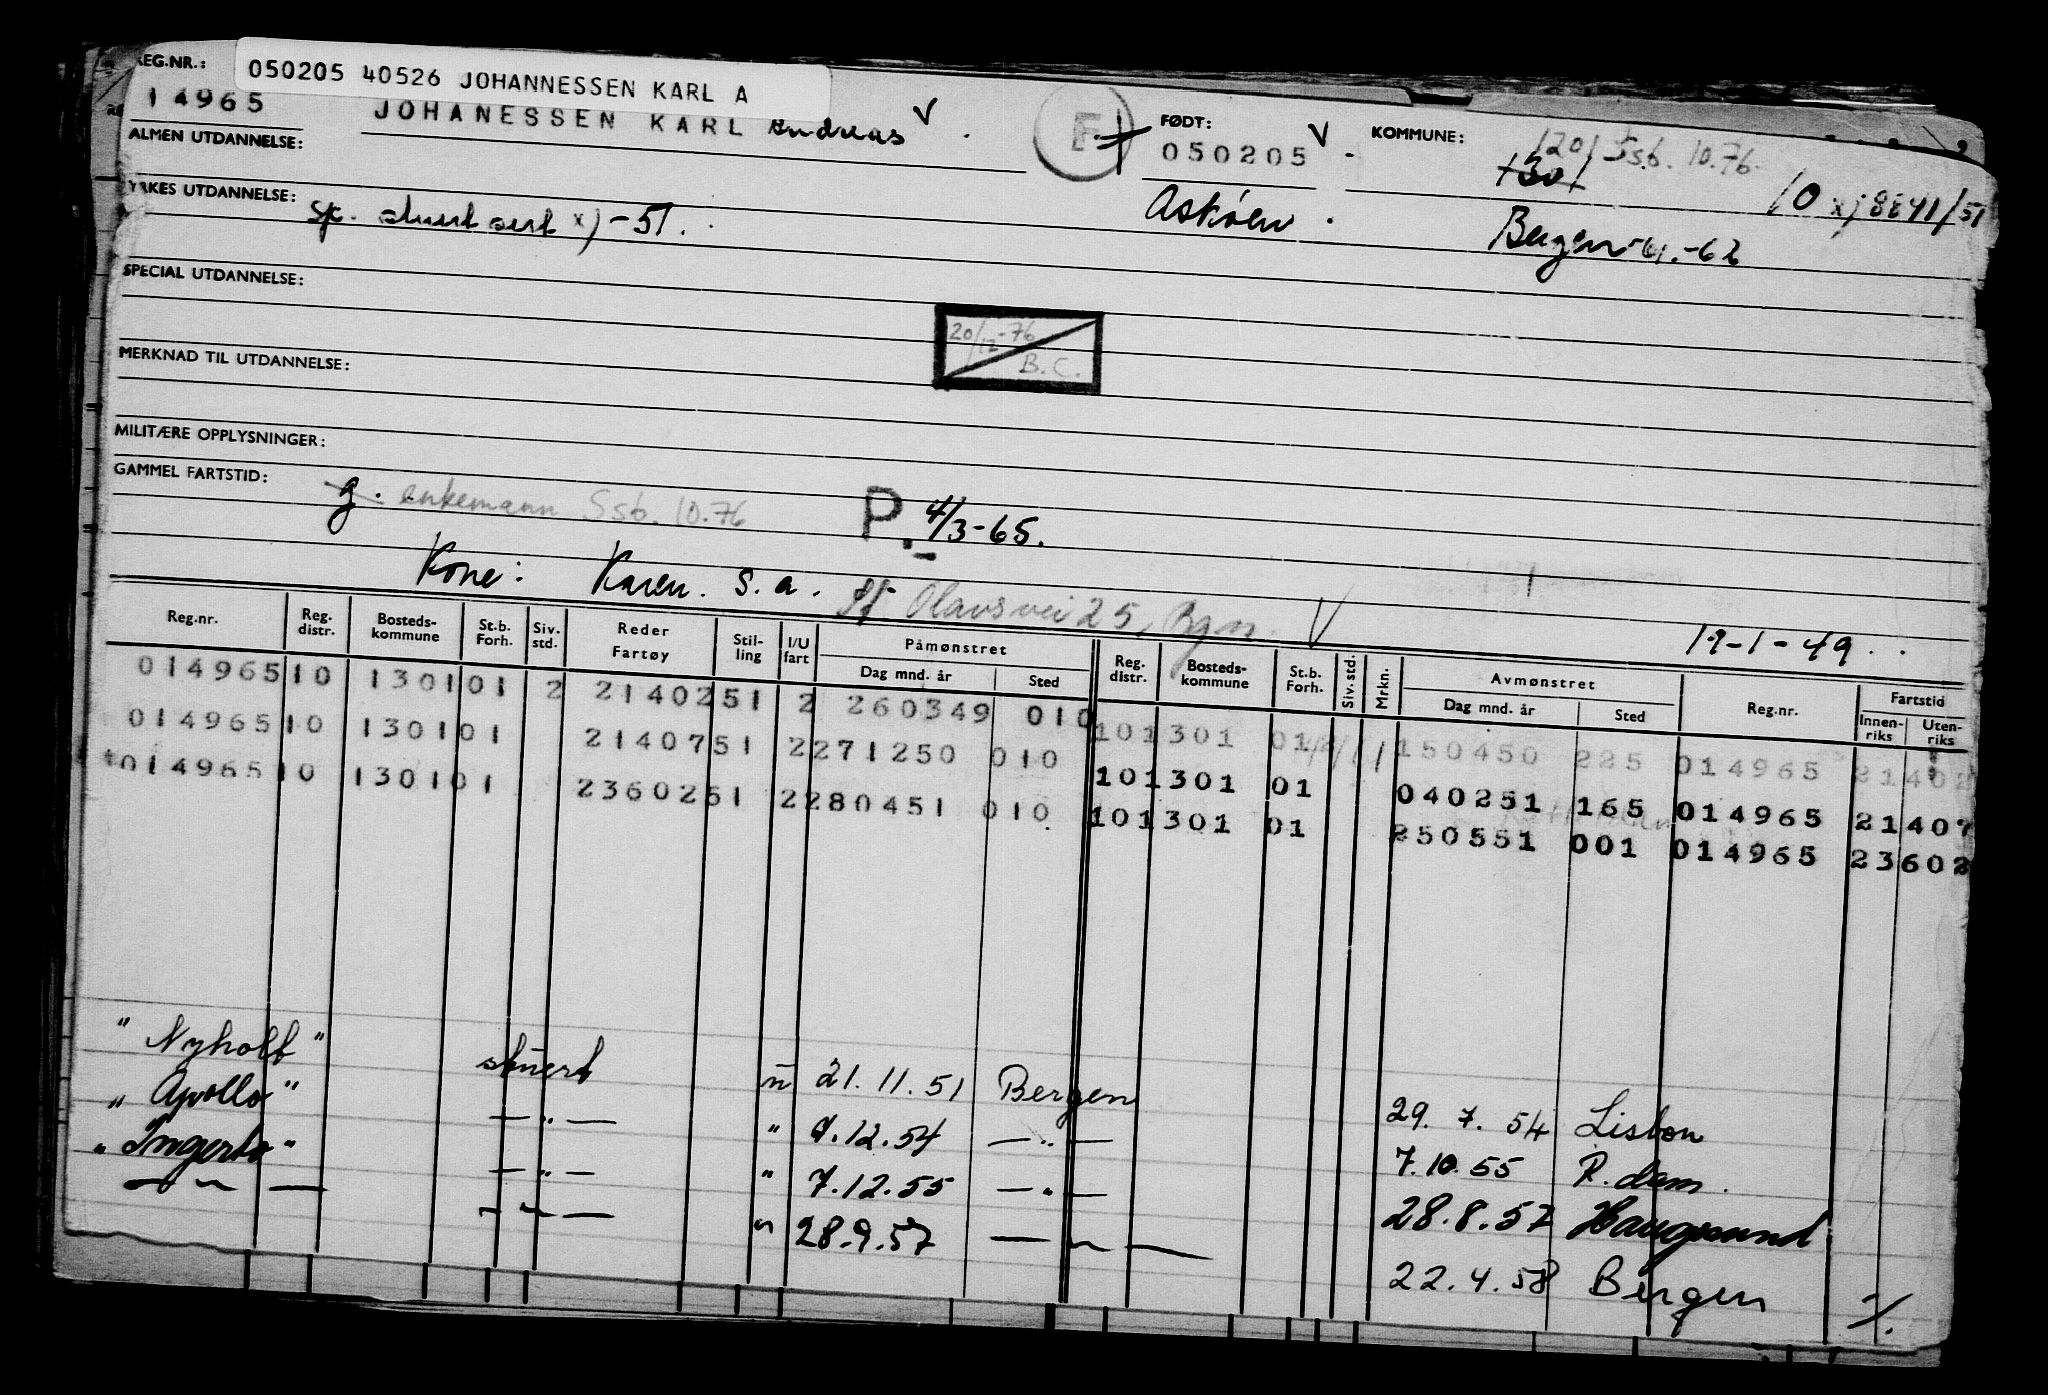 REG.NR.: 050205 40526 JOHANNESSEN KARL A
14965 JOHANESSEN KARL Andreas V F FØDT: 050205 V - KOMMUNE: 1301 1201 Ssb. 10.76.
ALMEN UTDANNELSE:
YRKES UTDANNELSE: Sp. stuert sert x) -51. Askøen. Bergen 61.-62 10 x) 8841/51
SPECIAL UTDANNELSE:
20/12-76 B.C.
MERKNAD TIL UTDANNELSE:
MILITÆRE OPPLYSNINGER:
GAMMEL FARTSTID: g. enkemann Ssb. 10.76 P. 4/3-65.
Kone: Karen. s.a. St Olavsvei 25, Bgn V 19-1-49
Reg.nr. Reg. distr. Bosteds-kommune St.b. Forh. Siv. std. Reder Fartøy Stil-ling I/U fart Påmønstret Dag mnd. år Sted Reg. distr. Bosteds-kommune St.b. Forh. Siv. std. Mrkn. Avmønstret Dag mnd. år Sted Reg.nr. Fartstid Innen-riks Uten-riks
014965 10 1301 01 2 21402 51 2 260349 010 10 1301 01 150450 225 014965 21402
014965 10 1301 01 21407 51 2 271250 010 10 1301 01 040251 165 014965 21407
014965 10 1301 01 23602 51 2 280451 010 10 1301 01 250551 001 014965 23602
"Nyholt" stuert u 21.11.51 Bergen 29.7.54 Lisbon
"Apollo" —"— " 9.12.54 —"— 7.10.55 R.dam.
"Ingerto" —"— " 7.12.55 —"— 28.8.57 Haugesund
—"— —"— " 28.9.57 —"— 22.4.58 Bergen %